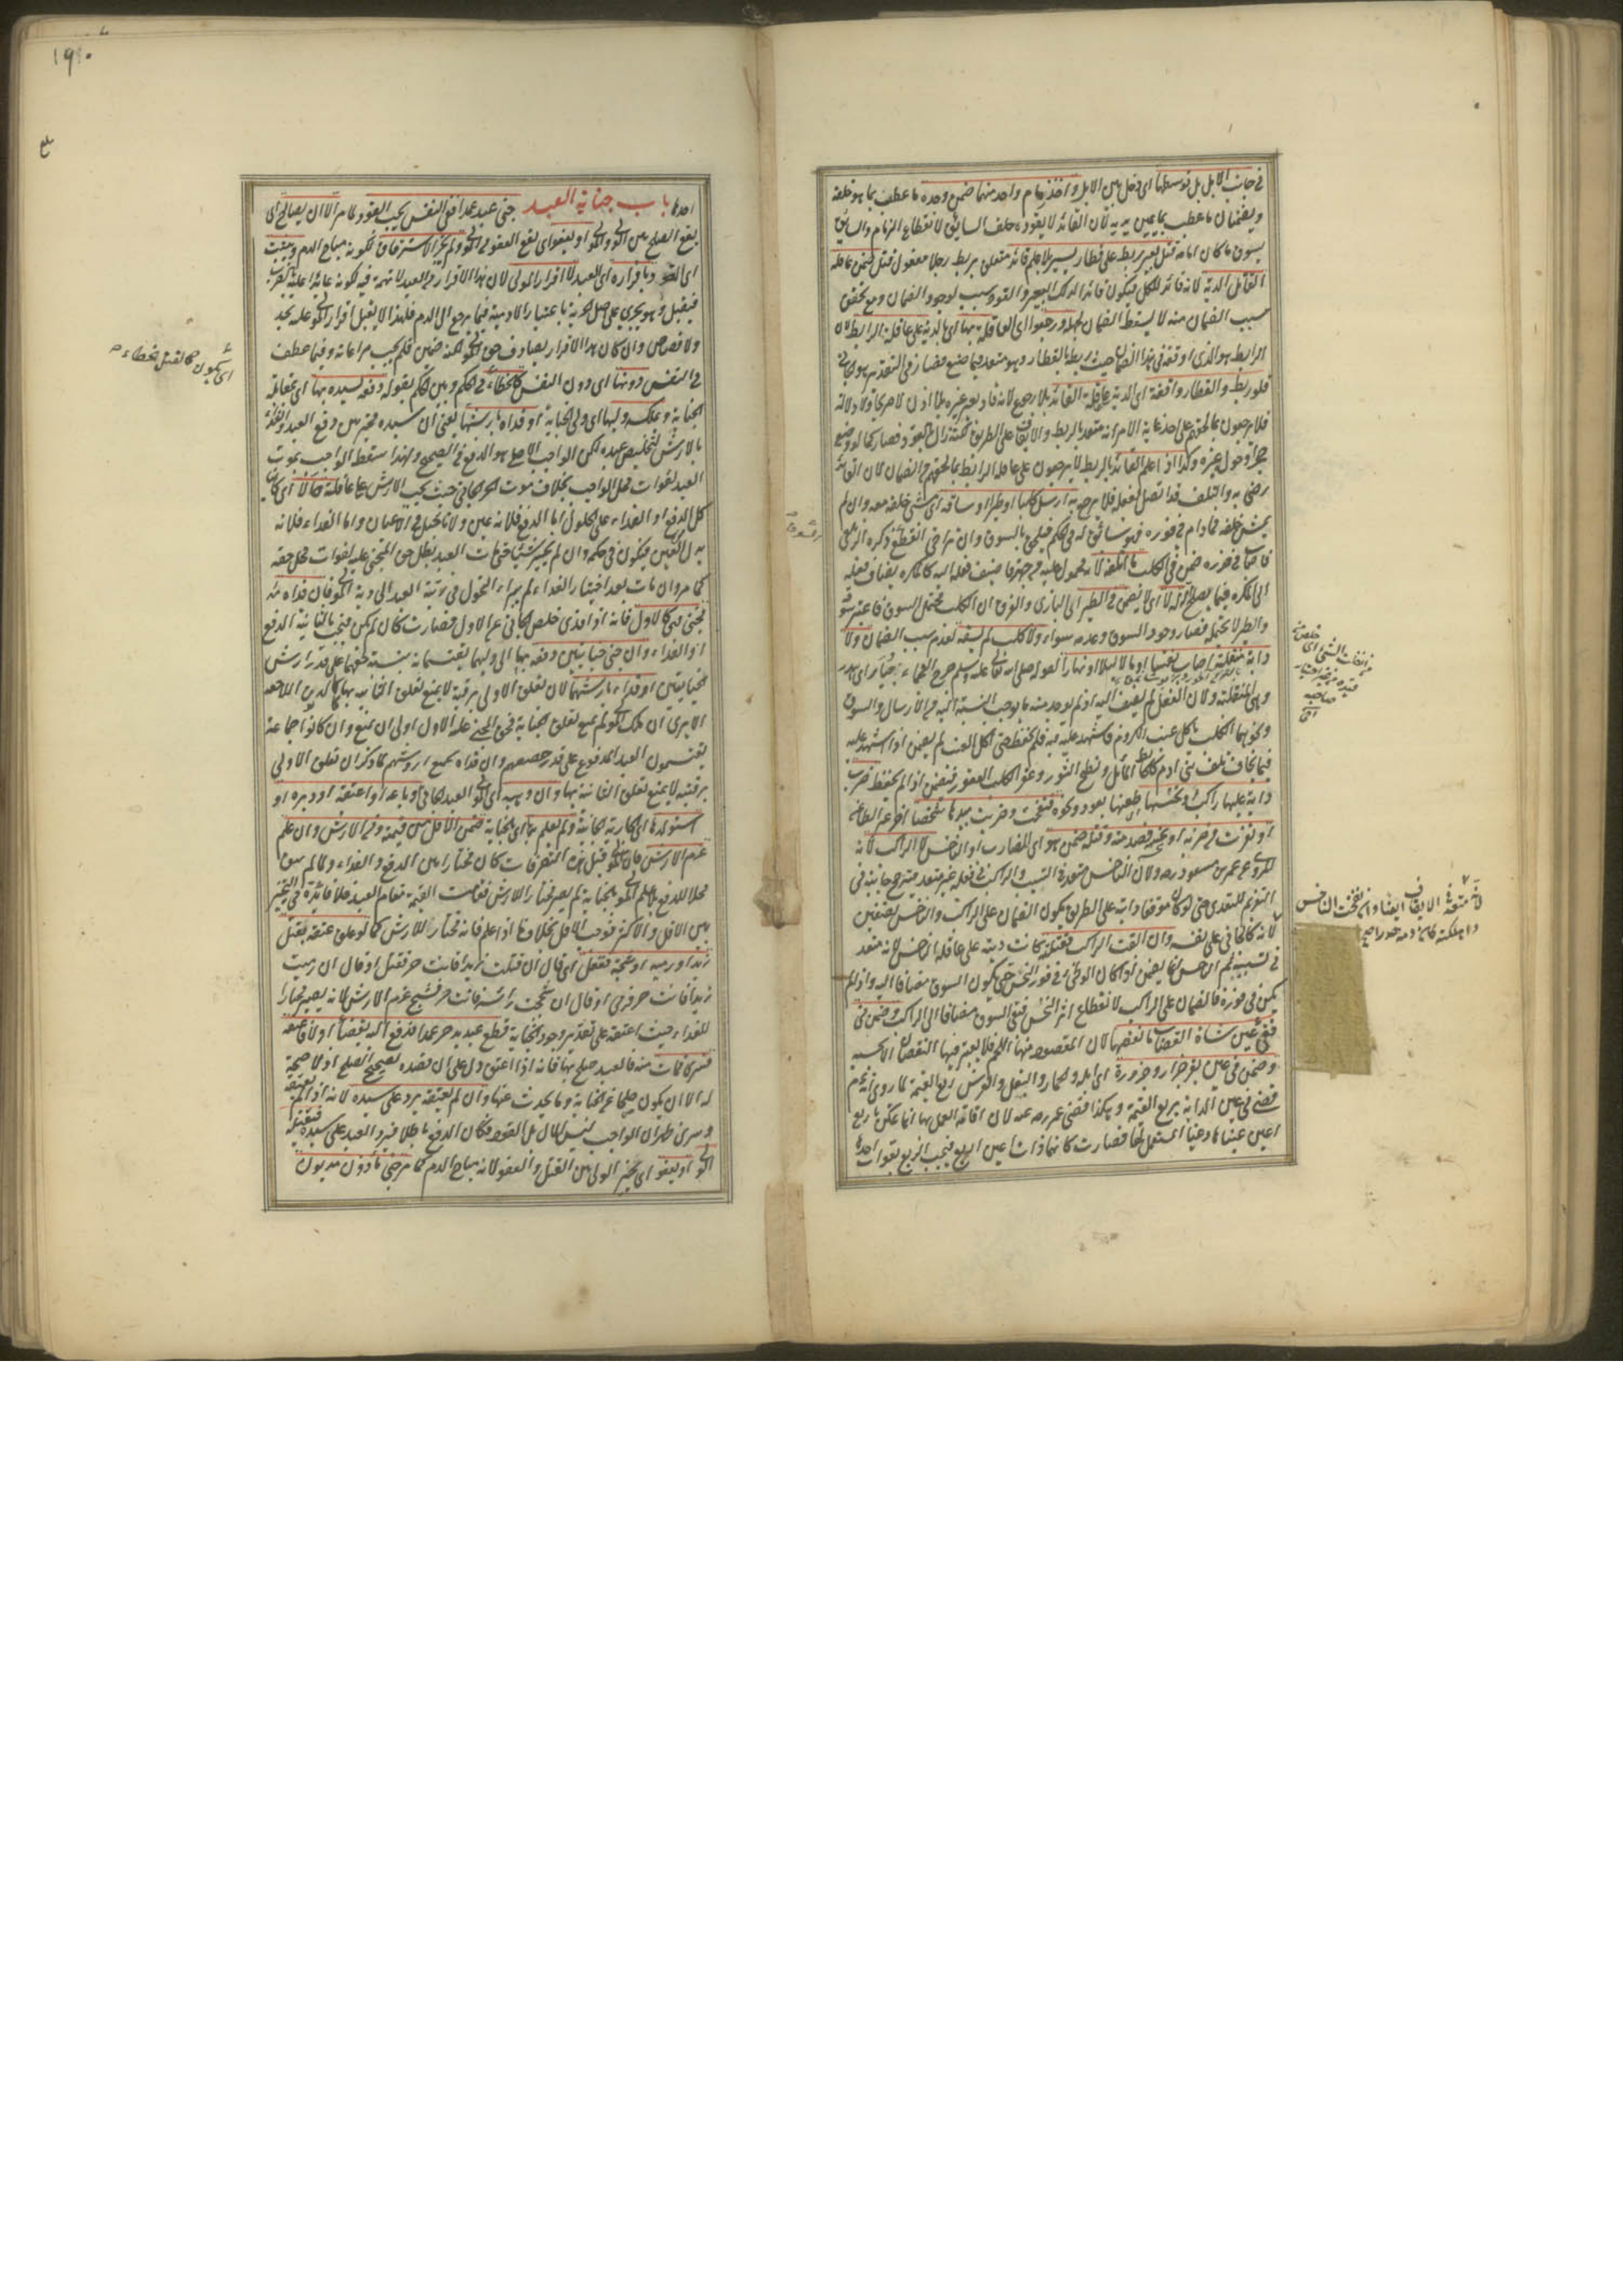 في جانب الابل بل توسطها اى دخل بين الابل واخذ زمام واحد منها ضمن وحده ما عطب بما هو خلفه
ويضمنان ما عطب بما بين يديه لان القائد لا يقود ما خلف السائق لانقطاع الزمام والسائق
يسوق ما كان امامه قتل بعير ربط على قطار يسير بلا علم قائده متعلق بربط رجلا مفعول قتل ضمن عاقلة
القائد الدية لانه قائد للكل فيكون قائدا لذلك البعير والقود سبب لوجود الضمان ومع تحقق
سبب الضمان منه لا يسقط الضمان لجهله ورجعوا اى العاقلة بها اى بالدية على عاقلة الرابط لان
الرابط هو الذى اوقعه في هذا الضمان حيث ربطه بالقطار وهو متعد فيما صنع فصار في التقدير هو الجانى
فلو ربط والقطار واقفة اى الدية على عاقلة القائد بلا رجوع لانه قاد بعير غيره بلا اذن لا صريحا ولا دلالة
فلا يرجعون بما لحقهم على احد غاية الامر انه متعد بالربط والايقاف على الطريق لكنه زال بالقود فصار كما لو وضع
حجرا وحوله غيره وكذا اذا علم القائد بالربط لا يرجعون على عاقلة الرابط بما لحقهم من الضمان لان القائد
رضى به والتلف قد اتصل بفعله فلا يرجع به ارسل كلبا او طيرا او ساقه اى مشى خلفه معه وان لم
يمش خلفه فما دام في فوره فهو سائق له في الحكم فيلحق بالسوق وان تراخى انقطع ذكره الزيلعى
فاصاب في فوره ضمن في الكلب ما اتلفه لانه محمول عليه من جهته فاضيف فعله اليه كالمكره يضاف فعله
الى المكره فيما يصلح آلة له لا اى لا يضمن في الطير اى البازى والفرق ان الكلب يحتمل السوق فاعتبر سوقه
والطير لا يحتمله فصار وجود السوق وعدمه سواء ولا كلب لم يسقه لعدم سبب الضمان ولا
دابة منفلتة اصابت نفسا او مالا ليلا او نهارا لقوله صلى الله تعالى عليه وسلم جرح العجماء جبار اى هدر
وهى المنفلتة ولان الفعل لم يضف اليه اذ لم يوجد منه ما يوجب النسبة اليه من الارسال والسوق
ونحوهما الكلب ياكل عنب الكروم فاشهد عليه فيه فلم يحفظه حتى اكل العنب لم يضمن اذا اشهد عليه
فيما يخاف تلف بنى ادم كالحائط المائل ونطح الثور وعقر الكلب العقور فيضمن اذا لم يحفظه ضرب
دابة عليها راكب او نخسها اى طعنها بعود ونحوه فنفحت او ضربت بيدها شخصا اخر غير الطاعن
او نفرت من ضربه او نخسه فصدمته وقتله ضمن هو اى الضارب او الناخس لا الراكب لانه
المروى عن عمر وبن مسعود رضه ولان الناخس متعد في التسبيب والراكب في فعله غير متعد فيترجح جانبه في
التغريم للتعدى حتى لو كان موقفا دابته على الطريق يكون الضمان على الراكب والناخس نصفين
لانه كالجانى على نفسه وان القت الراكب فقتلته كانت ديته على عاقلة الناخس لانه متعد
في تسبيبه ثم الناخس انما يضمن اذا كان الوطئ في فور النخس حتى يكون السوق مضافا اليه واذا لم
يكن في فوره فالضمان على الراكب لانقطاع اثر النخس فبقى السوق مضافا الى الراكب وضمن في
فقئ عين شاة القصاب ما نقصها لان المقصود منها اللحم فلا يعتبر فيها النقصان الا بحسبه
وضمن في عين بقر جزار وجزوره اى ابله والحمار والبغل والفرس ربع القيمة لما روى انه عم
قضى في عين الدابة بربع القيمة وهكذا قضى عمر رضه عنه لان اقامة العمل بها انما يمكن باربع
اعين عيناها وعينا المستعمل لها فصارت كانها ذات اعين اربع فيجب الربع بفوات احدها
١٩٠
احدها باب جناية العبد جنى عبد عمدا ففي النفس يجب القود كما مر الا ان يصالح اى
يقع الصلح بين الولى والمولى او يعفو اى يقع العفو لولى المولى ولم يجز الاسترقاق لكونه مباح الدم ويثبت
اى القود وباقراره اى العبد لا اقرار المولى لان هذا الاقرار من العبد لا تهمة فيه لكونه عائدا عليه بالضرر
فيقبل وهو يجرى على اصل الحرية باعتبار الادمية فيما يرجع الى الدم فلهذا لا يقبل اقرار المولى عليه بحد
ولا قصاص وان كان هذا الاقرار يصادف حق المولى لكنه ضمن فلم يجب مراعاته وفيما عطف
في النفس دونها اى دون النفس كالخطاء في الحكم وبين الحكم بقوله دفعه لسيده بها اى بمقابلة
الجناية ويملكه وليها اى ولى الجناية او فداه بارشها يعنى ان سيده مخير بين دفع العبد والفداء
بالارش لتخليص عبده لكن الواجب الاصلى هو الدفع في الصحيح ولهذا سقط الواجب بموت
العبد لفوات محل الواجب بخلاف موت الحر الجانى حيث يجب الارش على عاقلته حالا اى كائنا
كل الدفع او الفداء على الحلول اما الدفع فلانه عين ولا تاجيل في الاعيان واما الفداء فلانه
بدل العين فيكون في حكمه وان لم يختر شيئا حتى مات العبد بطل حق المجنى عليه لفوات محل حقه
كما مر وان مات بعد اختيار الفداء لم يبراء لتحول من رقبة العبد الى ذمة المولى فان فداه ثم
فجنى فهى كالاولى فانه اذا فدى خلص الجانى عن الاول فصارت كان لم تكن فيجب بالثانية الدفع
او الفداء وان جنى جنايتين دفعه بها الى وليهما يقتسمانه بنسبة حقهما على قدر ارش
جنايتين او فداء بارشهما لان تعلق الاولى برقبة لا يمنع تعلق الثانية بها كالديون المتلاحقة
الا يرى ان ملك المولى لم يمنع تعلق الجناية فحق المجنى عليه الاول اولى ان لا يمنع وان كانوا جماعة
يقتسمون العبد المدفوع على قدر حصصهم وان فداه بجميع اروشهم كما ذكر ان تعلق الاولى
برقبته لا يمنع تعلق الثانية بها وان وهبه اى المولى العبد الجانى او باعه او اعتقه او دبره او
استولدها اى الجارية الجانية ولم يعلم بها اى الجناية ضمن الاقل من قيمته ومن الارش وان علم
غرم الارش فان المولى قبل هذه التصرفات كان مختارا بين الدفع والفداء ولما لم يبق
محلا للدفع بلا علم المولى بالجناية لم يصر مختارا للارش فقامت القيمة مقام العبد فلا فائدة في التخيير
بين الاقل والاكثر فوجب الاقل بخلاف ما اذا علم فانه مختار للارش كما لو علق عتقه بقتل
زيد او رميه او شجه ففعل اى قال ان قتلت زيدا فانت حر فقتل او قال ان رميت
زيدا فانت حر فرمى او قال ان شججت راسه فانت حر فشج غرم الارش لانه يصير مختارا
للفداء حيث اعتقه على تقدير وجود الجناية قطع عبد يد حر عمدا فدفع اليه بقضاء او لا فاعتقه
فسرى فمات منه فالعبد صلح بها فانه اذا اعتق دل على ان قصده تصحيح الصلح اذ لا صحة
له الا ان يكون صلحا عن الجناية وما يحدث عنها وان لم يعتقه يرد على سيده لانه اذا لم يعتقه
وسرى ظهر ان الواجب ليس المال بل القود فكان الدفع باطلا فيرد العبد على سيده فيقتله
الولى او يعفو اى يخير الولى بين القتل والعفو لانه مباح الدم كما مر جنى مأذون مديون
اى يكون كالقتل بخطاء